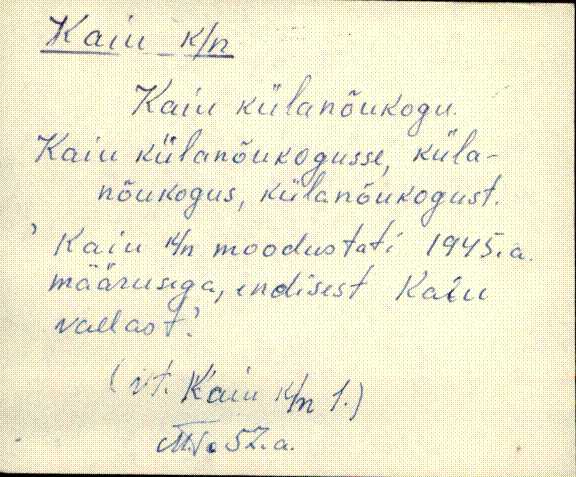 Kaiu k/n
Kaiu külanõukogu.
Kaiu külanõukogusse, küla-
nõukogus, külanõukogust.
' Kaiu k/n moodustati 1945.a.
määrusega, endisest Kaiu
vallast.'
(vt. Kaiu k/n 1.)
52.a.